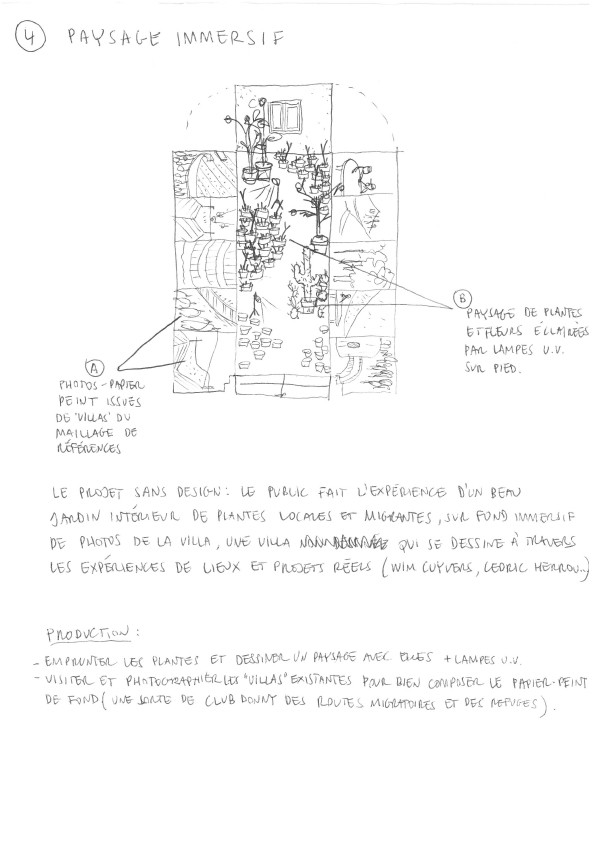 4 PAYSAGE IMMERSIF
B
PAYSAGE DE PLANTES
ET FLEURS ÉCLAIRÉES
PAR LAMPES U.V.
SUR PIED.
A
PHOTOS-PAPIER
PEINT ISSUES
DE 'VILLAS' DU
MAILLAGE DE
RÉFÉRENCES
LE PROJET SANS DESIGN : LE PUBLIC FAIT L'EXPÉRIENCE D'UN BEAU
JARDIN INTÉRIEUR DE PLANTES LOCALES ET MIGRANTES, SUR FOND IMMERSIF
DE PHOTOS DE LA VILLA, UNE VILLA QUI SE DESSINE À TRAVERS
LES EXPÉRIENCES DE LIEUX ET PROJETS RÉELS (WIM CUYVERS, CEDRIC HERROU..)
PRODUCTION :
- EMPRUNTER LES PLANTES ET DESSINER UN PAYSAGE AVEC ELLES + LAMPES U.V.
- VISITER ET PHOTOGRAPHIER LES "VILLAS" EXISTANTES POUR BIEN COMPOSER LE PAPIER-PEINT
DE FOND (UNE SORTE DE CLUB DONNY DES ROUTES MIGRATOIRES ET DES REFUGES).